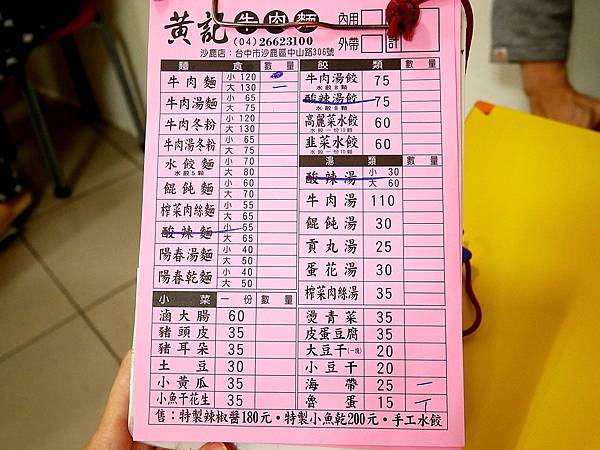 黃記牛肉麵 內用
(04)26623100 外帶 計
沙鹿店：台中市沙鹿區中山路306號
麵 食 數 量
牛肉麵 小 120
大 130 一
牛肉湯麵 小 65
大 75
牛肉冬粉 小 120
大 130
牛肉湯冬粉 小 65
大 75
水餃麵 小 70
水餃5顆 大 80
餛飩麵 小 60
大 70
榨菜肉絲麵 小 55
大 65
酸辣麵 小 55
大 65
陽春湯麵 小 40
大 50
陽春乾麵 小 40
大 50
餃 類 數 量
牛肉湯餃 75
水餃8顆
酸辣湯餃 75
水餃8顆
高麗菜水餃 60
水餃一份10顆
韭菜水餃 60
水餃一份10顆
湯 類 數 量
酸辣湯 小 30
大 60
牛肉湯 110
餛飩湯 30
貢丸湯 25
蛋花湯 30
榨菜肉絲湯 35
小 菜 一 份 數 量
滷大腸 60
豬頭皮 35
豬耳朵 35
土豆 30
小黃瓜 35
小魚干花生 35
燙青菜 35
皮蛋豆腐 35
大豆干(一塊) 20
小豆干 20
海帶 25 一
魯蛋 15 丅
售：特製辣椒醬180元・特製小魚乾200元・手工水餃